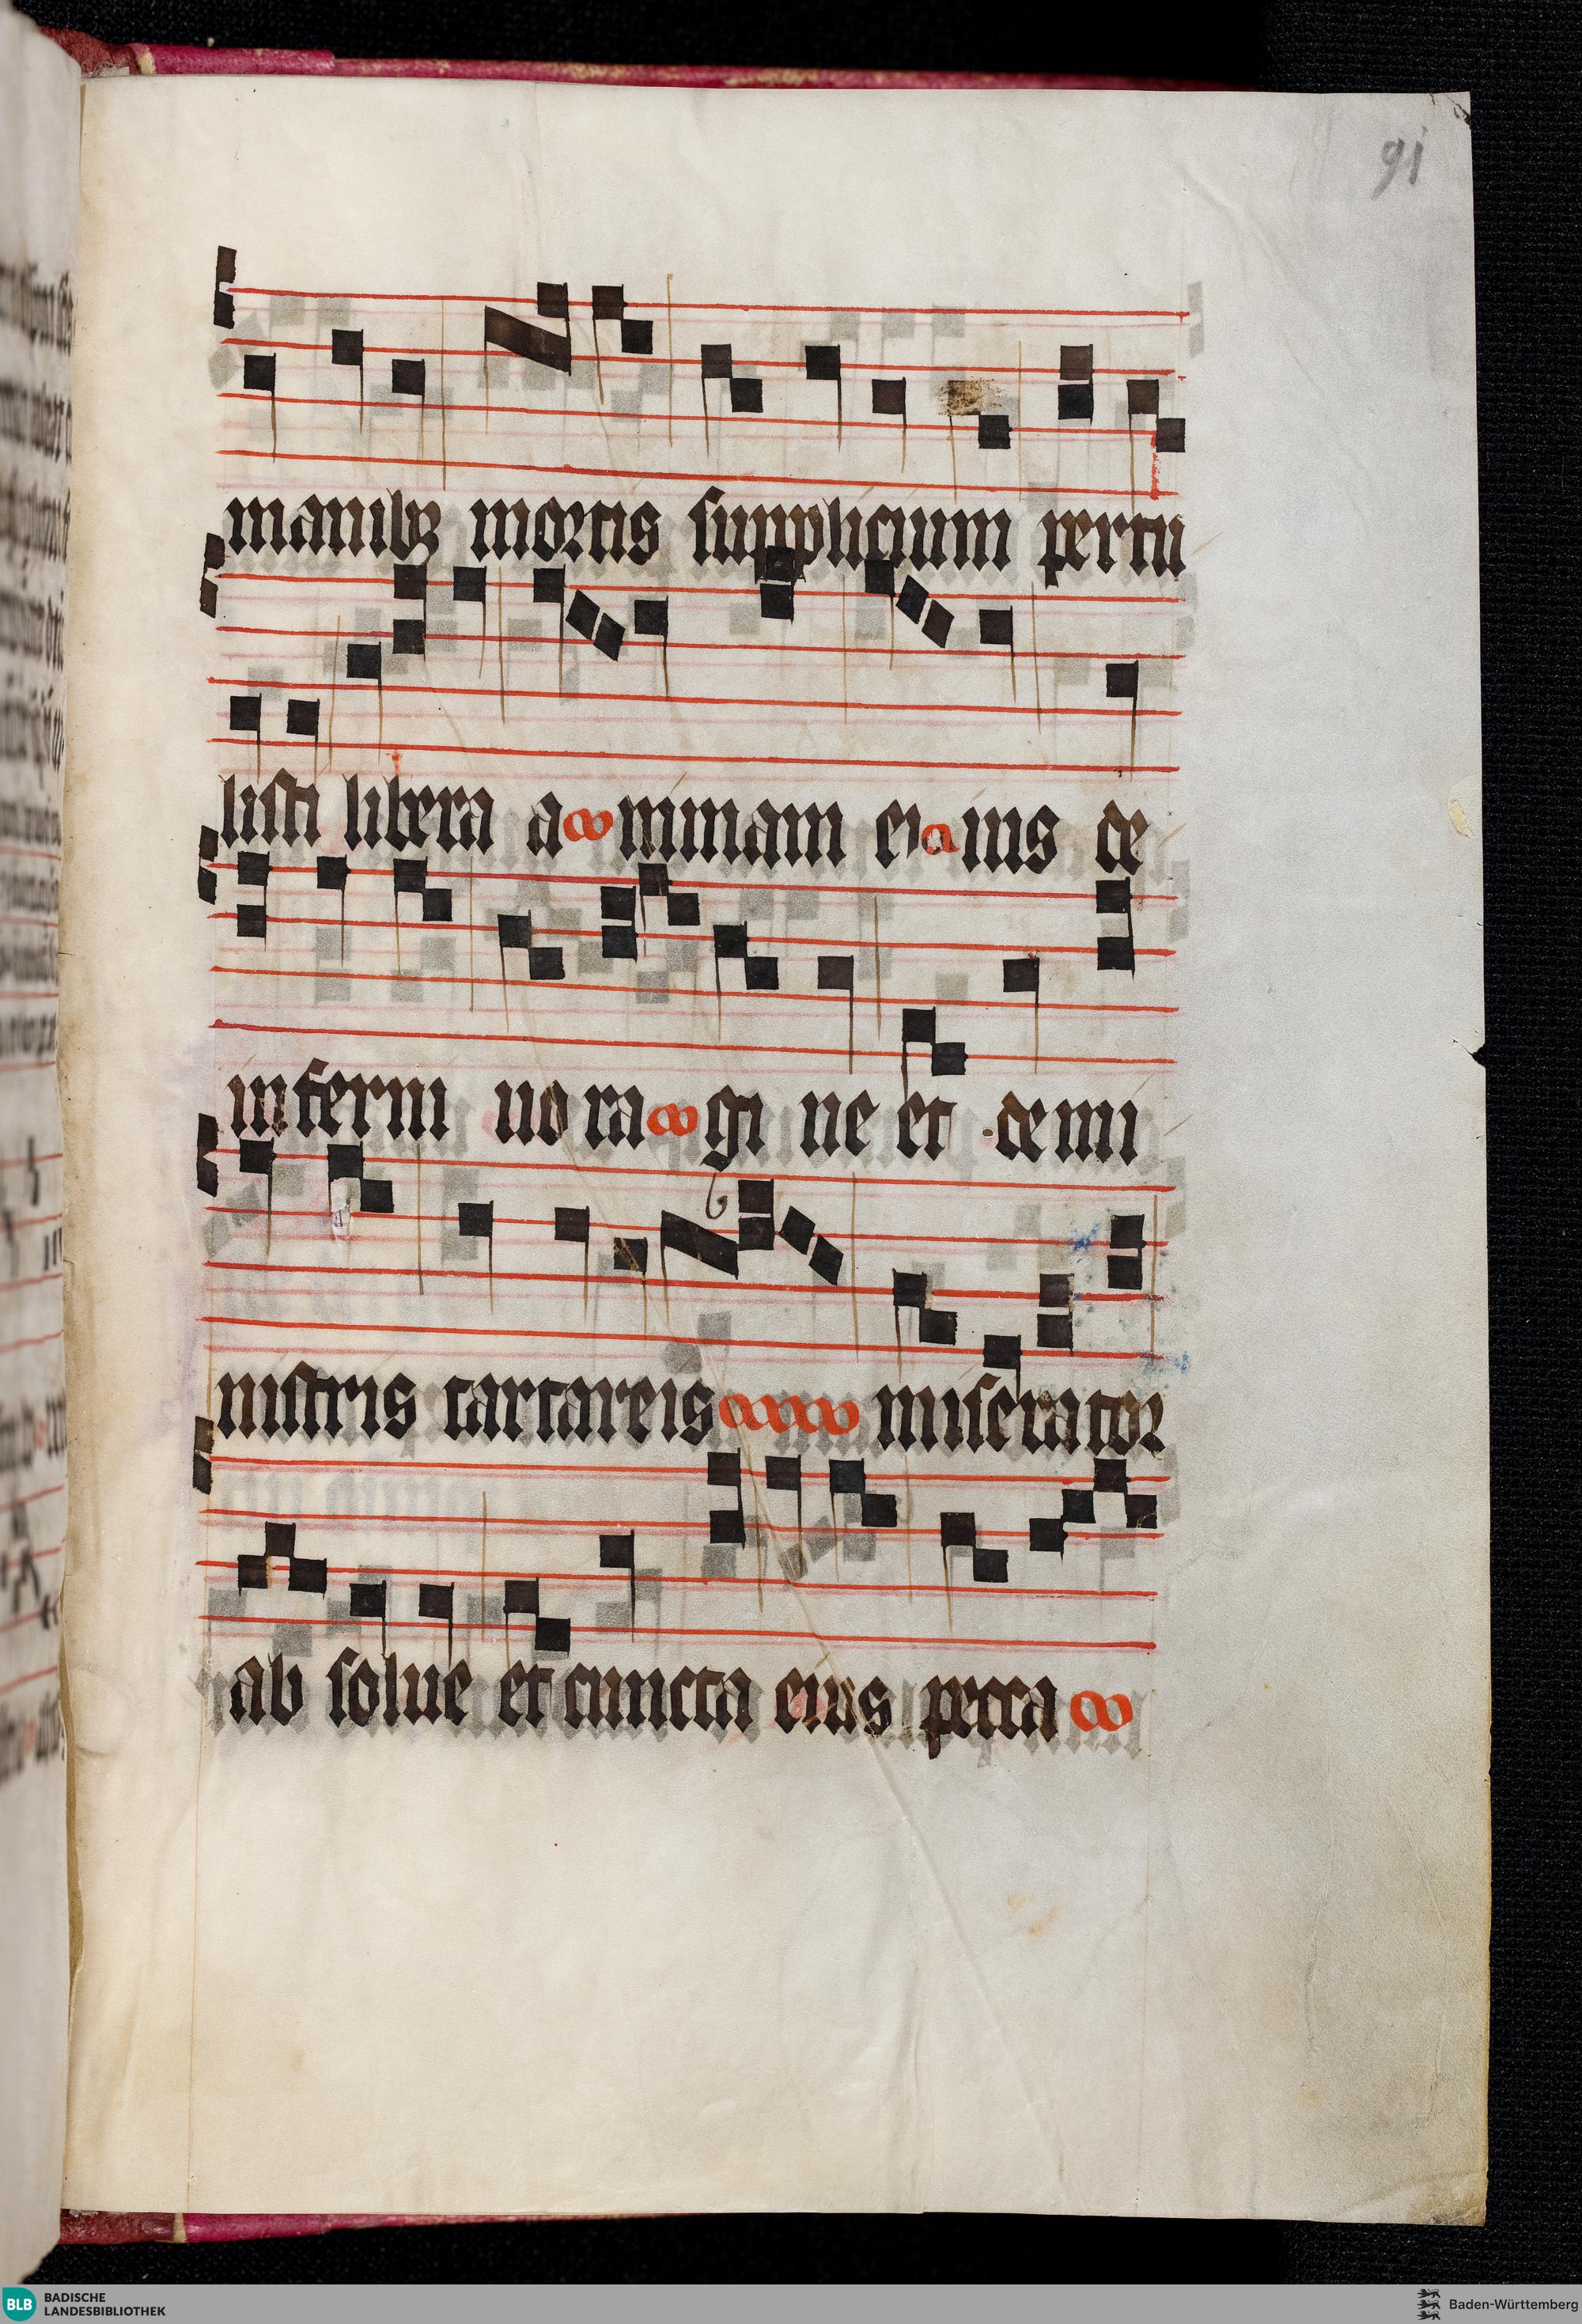 91
manibꝫ mortis supplicium pertu
listi libera a nimam ei ius de
inferni uo ra gi ne et de mi
nistris tartareis miserator
ab solue et cuncta eius pecca
BLB BADISCHE LANDESBIBLIOTHEK
Baden-Württemberg